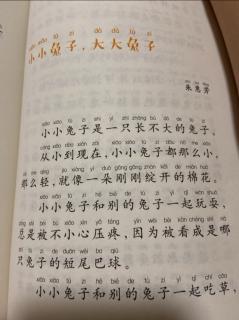 xiǎo xiǎo tù zi dà dà tù zi
小小兔子，大大兔子
zhū huì fāng
朱惠芳
xiǎo xiǎo tù zi shì yì zhī zhǎng bú dà de tù zi
小小兔子是一只长不大的兔子。
cóng xiǎo dào xiàn zài xiǎo xiǎo tù zi dōu nà me xiǎo
从小到现在，小小兔子都那么小，
nà me qīng jiù xiàng yì duǒ gāng gāng zhàn kāi de mián huā
那么轻，就像一朵刚刚绽开的棉花。
xiǎo xiǎo tù zi hé bié de tù zi yì qǐ wán shuǎ
小小兔子和别的兔子一起玩耍，
zǒng shì bèi bù xiǎo xīn yā téng yīn wèi bèi kàn chéng shì nǎ
总是被不小心压疼，因为被看成是哪
zhī tù zi de duǎn wěi ba qiú
只兔子的短尾巴球。
xiǎo xiǎo tù zi hé bié de tù zi yì qǐ chī cǎo
小小兔子和别的兔子一起吃草，